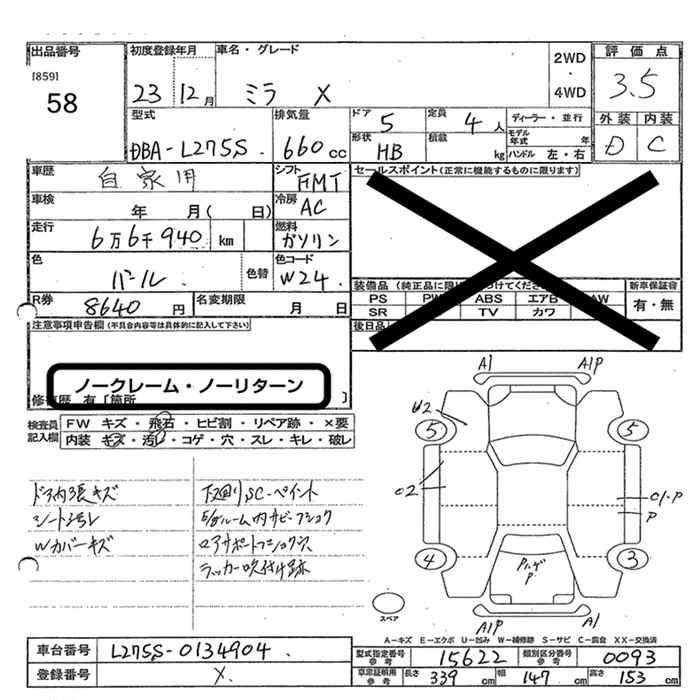 出品番号
[859]
58
初度登録年月
23 12月
車名・グレード
ミラ X
2WD
・
4WD
評価点
3.5
外装 内装
D C
型式
DBA-L275S
排気量
660cc
ドア
5
定員
4人
形状
HB
積載
kg
ディーラー・並行
モデル
年式 年
ハンドル 左・右
車歴
自家用
シフト
FMT
車検
年 月( 日)
冷房
AC
走行
6万6千940 km
燃料
ガソリン
色
パール
色替
色コード
W24
R券
8640円
名変期限
月 日
セールスポイント(正常に機能するものに限ります)
装備品
PS ABS エアB AW
SR TV カワ
新車保証書
有・無
後日品
注意事項申告欄(不具合内容等は具体的に記入して下さい)
ノークレーム・ノーリターン
修復歴 有〔箇所 〕
検査員
記入欄
FW キズ・飛石・ヒビ割・リペア跡・×要
内装 キズ・汚レ・コゲ・穴・スレ・キレ・破レ
ドア内張キズ
シート汚レ
Wカバーキズ
下廻りSC-ペイント
E/gルーム内サビ・フショク
ロアサポートフショク
ラッカー吹付ケ跡
A1 A1P
U2
5 5
02
P
4 3
Pハゲ
P
A1P A1
スペア
A-キズ E-エクボ U-凹み W-補修跡 S-サビ C-腐食 XX-交換済
車台番号
L275S-0134904
登録番号
X
型式指定番号
参考
15622
類別区分番号
参考
0093
車庫証明用
参考
長さ 339cm 幅 147cm 高さ 153cm